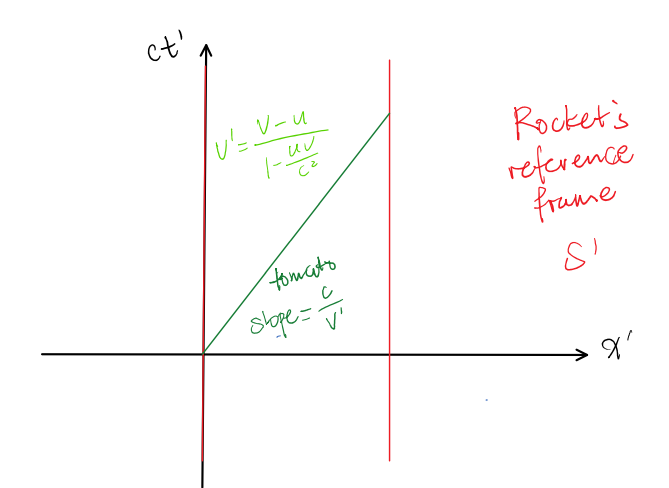 ct'
v' = \frac{v-u}{1-\frac{uv}{c^2}}
Rocket's
reference
frame
S'
tomato
slope = \frac{c}{v'}
x'